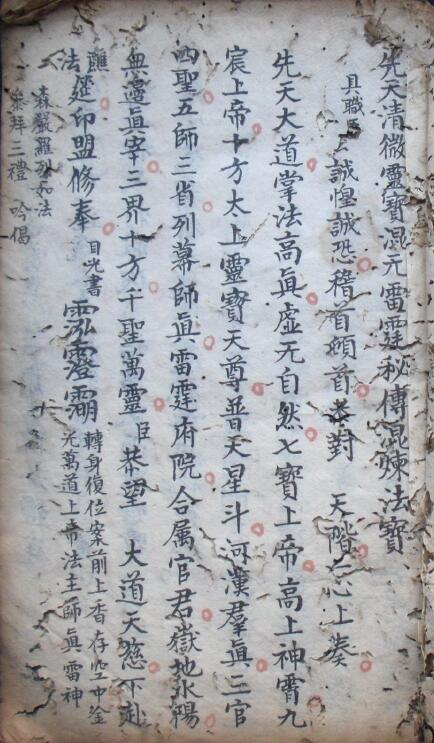 先天清微靈寶混元雷霆秘傳混煉法寶
具職臣厶誠惶誠恐稽首頓首恭對 天階 心上奏
先天大道掌法高眞虛无自然七寶上帝高上神霄九
宸上帝十方太上靈寶天尊普天星斗河漢羣眞三官
四聖五師三省列幕師眞雷霆府院合属官君嶽地水陽
無邊眞宰三界十方千聖萬靈臣恭望 大道天慈下赴
醮
法筵印盟修奉 目光書
轉身復位案前上香存空中金
光萬道上帝法主師眞雷神
森嚴羅列如法
叅拜三禮 吟偈